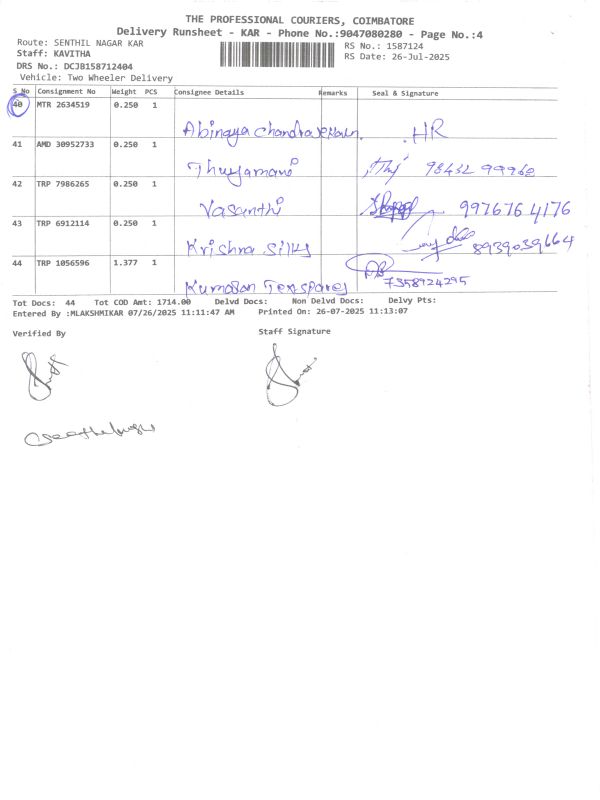 THE PROFESSIONAL COURIERS, COIMBATORE
Delivery Runsheet - KAR - Phone No.:9047080280 - Page No.:4
Route: SENTHIL NAGAR KAR RS No.: 1587124
Staff: KAVITHA RS Date: 26-Jul-2025
DRS No.: DCJB158712404
Vehicle: Two Wheeler Delivery
S No Consignment No Weight PCS Consignee Details Remarks Seal & Signature
40 MTR 2634519 0.250 1
Abinaya HR
41 AMD 30952733 0.250 1
Thuyamani 98432 99968
42 TRP 7986265 0.250 1
Vasanthi 997676 4176
43 TRP 6912114 0.250 1
Krishna Silks 8939039664
44 TRP 1056596 1.377 1
Kumaran Texspares 7358924295
Tot Docs: 44 Tot COD Amt: 1714.00 Delvd Docs: Non Delvd Docs: Delvy Pts:
Entered By :MLAKSHMIKAR 07/26/2025 11:11:47 AM Printed On: 26-07-2025 11:13:07
Verified By Staff Signature